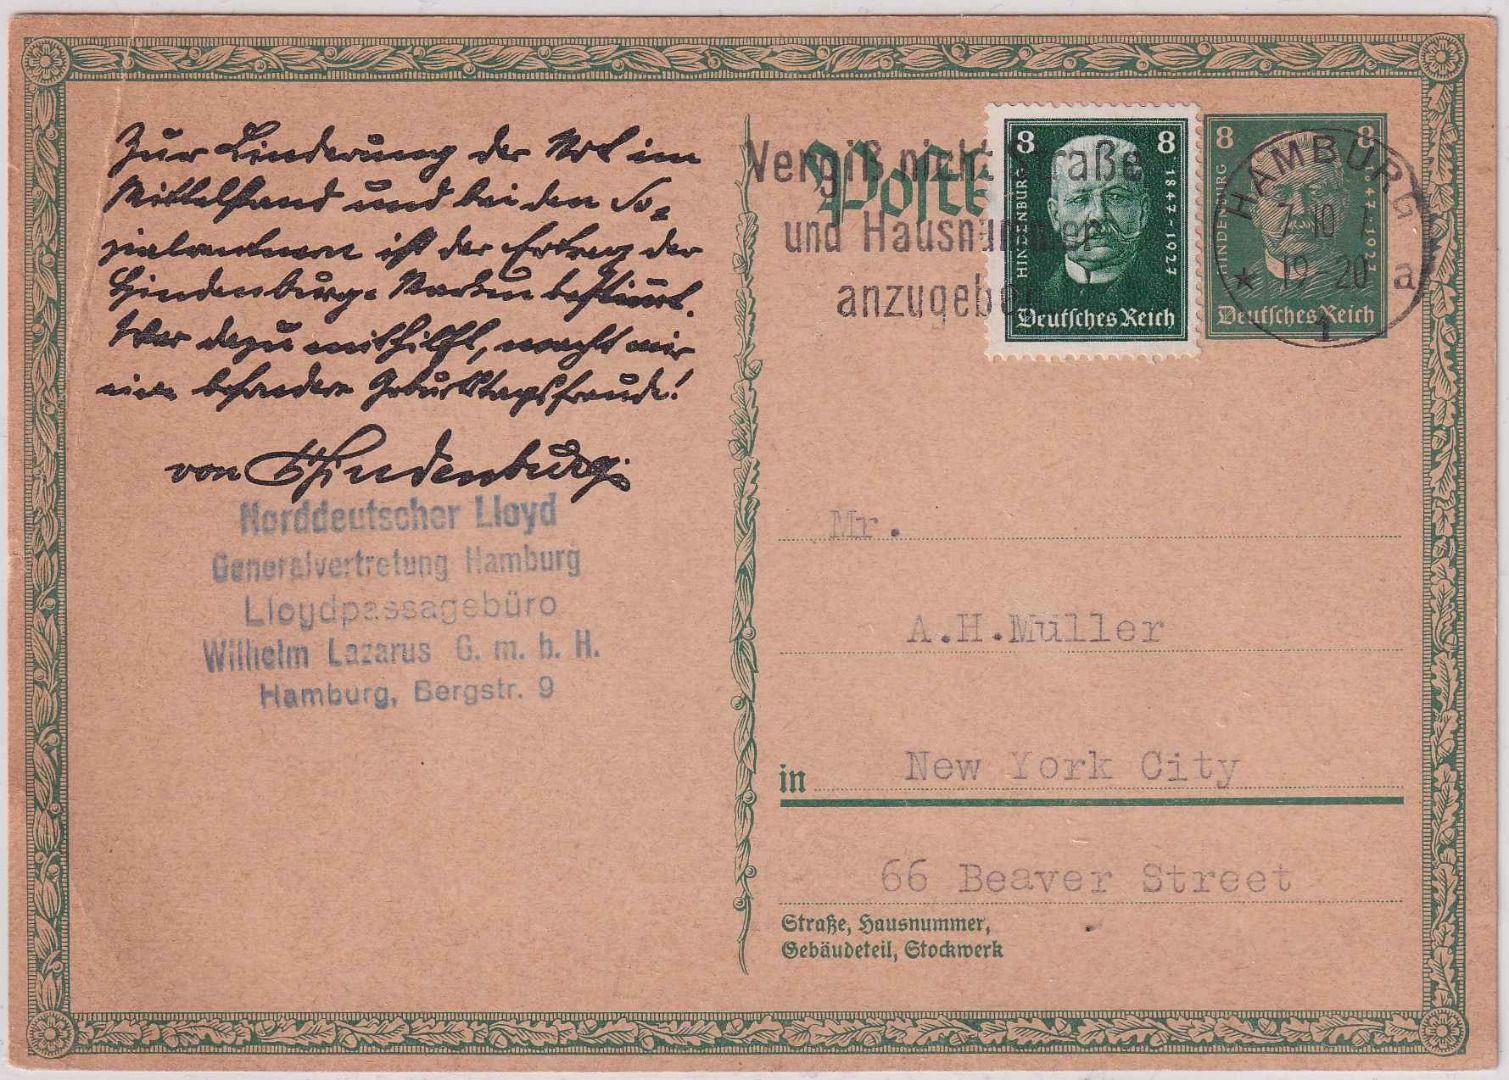 Zur Linderung der Not im
Mittelstand und bei den So-
zialrentnern ist der Ertrag der
Hindenburg-Marken bestimmt.
Wer dazu mithilft, macht mir
eine besondere Geburtstagsfreude!
von Hindenburg.
Norddeutscher Lloyd
Generalvertretung Hamburg
Lloydpassagebüro
Wilhelm Lazarus G. m. b. H.
Hamburg, Bergstr. 9
Vergiß nicht Straße
und Hausnummer
anzugeben
Postk
8 8
HINDENBURG 1847-1927
Deutsches Reich
8 8
HINDENBURG 1847-1927
Deutsches Reich
HAMBURG
7-10
19-20 a
1
Mr.
A.H.Müller
in New York City
66 Beaver Street
Straße, Hausnummer,
Gebäudeteil, Stockwerk